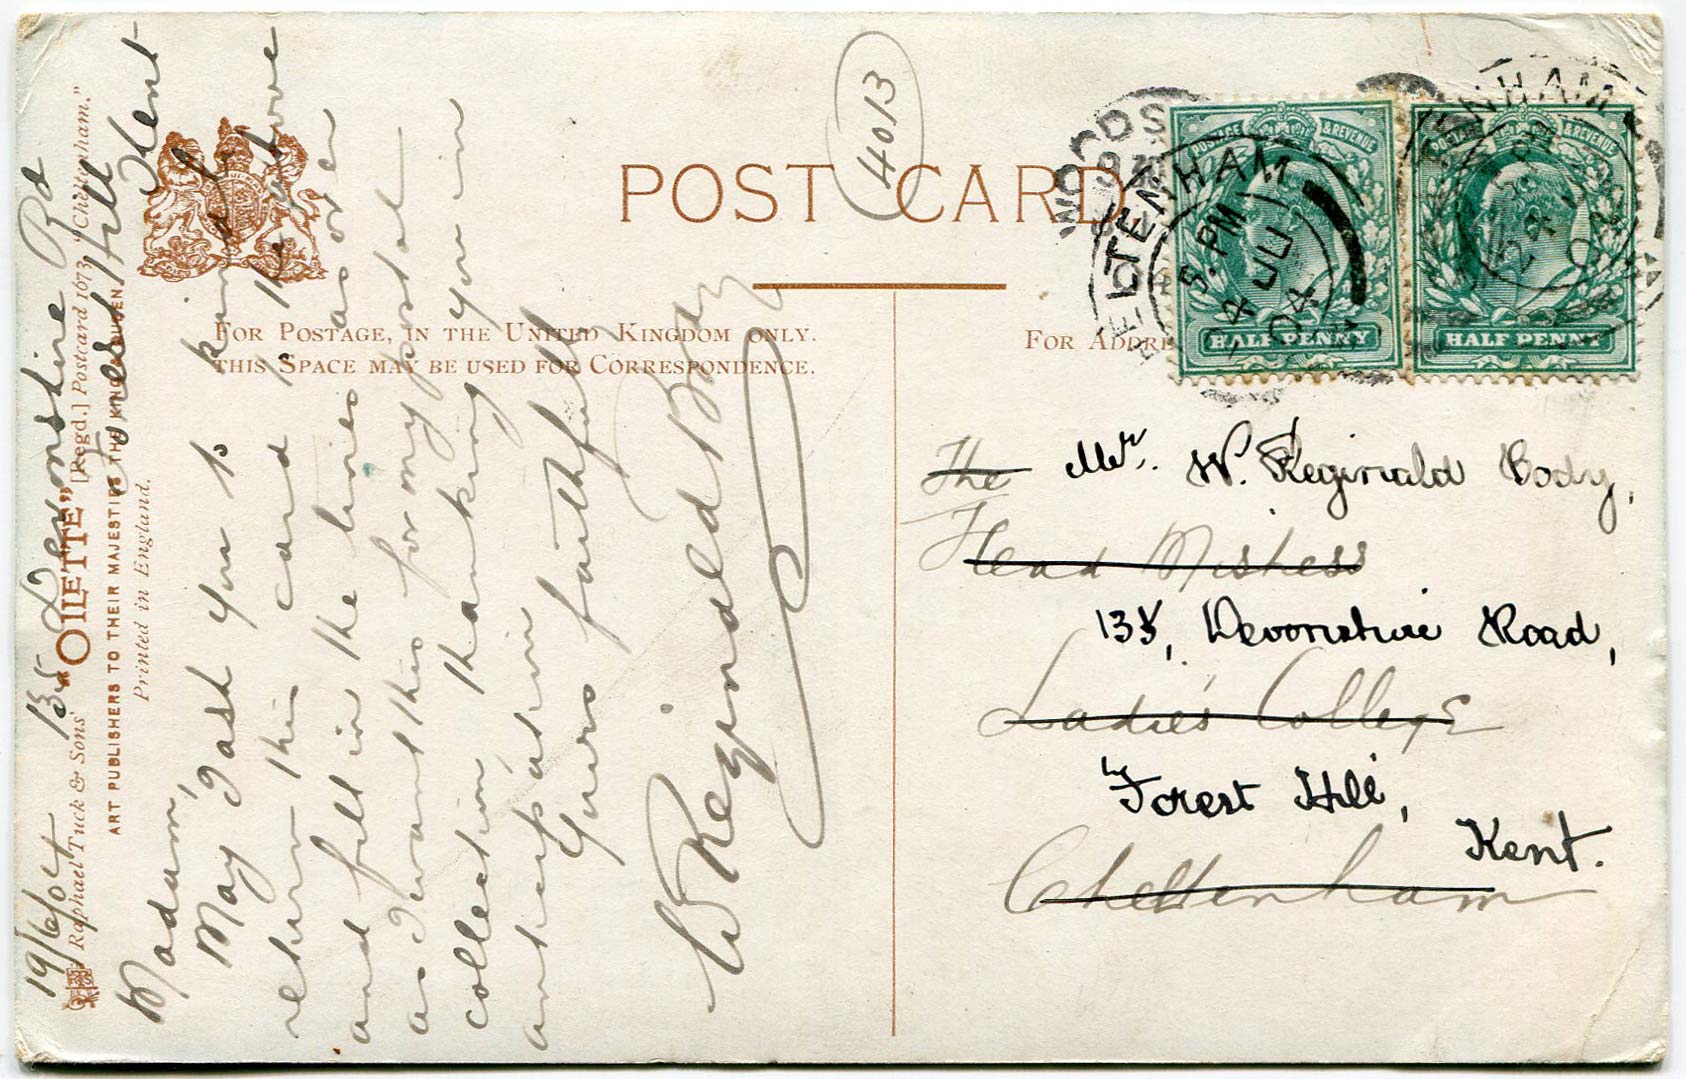 POST CARD
4013
FOR POSTAGE, IN THE UNITED KINGDOM ONLY.
THIS SPACE MAY BE USED FOR CORRESPONDENCE.
FOR ADDRE
Raphael Tuck & Sons' "OILETTE" [Regd.] Postcard 1673, "Cheltenham."
ART PUBLISHERS TO THEIR MAJESTIES THE KING & QUEEN.
Printed in England.
19/6/04 Devonshire Rd
Forest Hill Kent
Madam,
May I ask you to kindly
return this card to the above
and fill in the lines as over
as I want this for my postal
collection, thanking you in
anticipation
Yours faithfully
W Reginald Body
POSTAGE & REVENUE
HALF PENNY
POSTAGE & REVENUE
HALF PENNY
CHELTENHAM
5. PM
24 JU
04
The
Mr. W. Reginald Body,
Head Mistress
Devonshire Road,
Ladies College
Forest Hill,
Kent.
Cheltenham